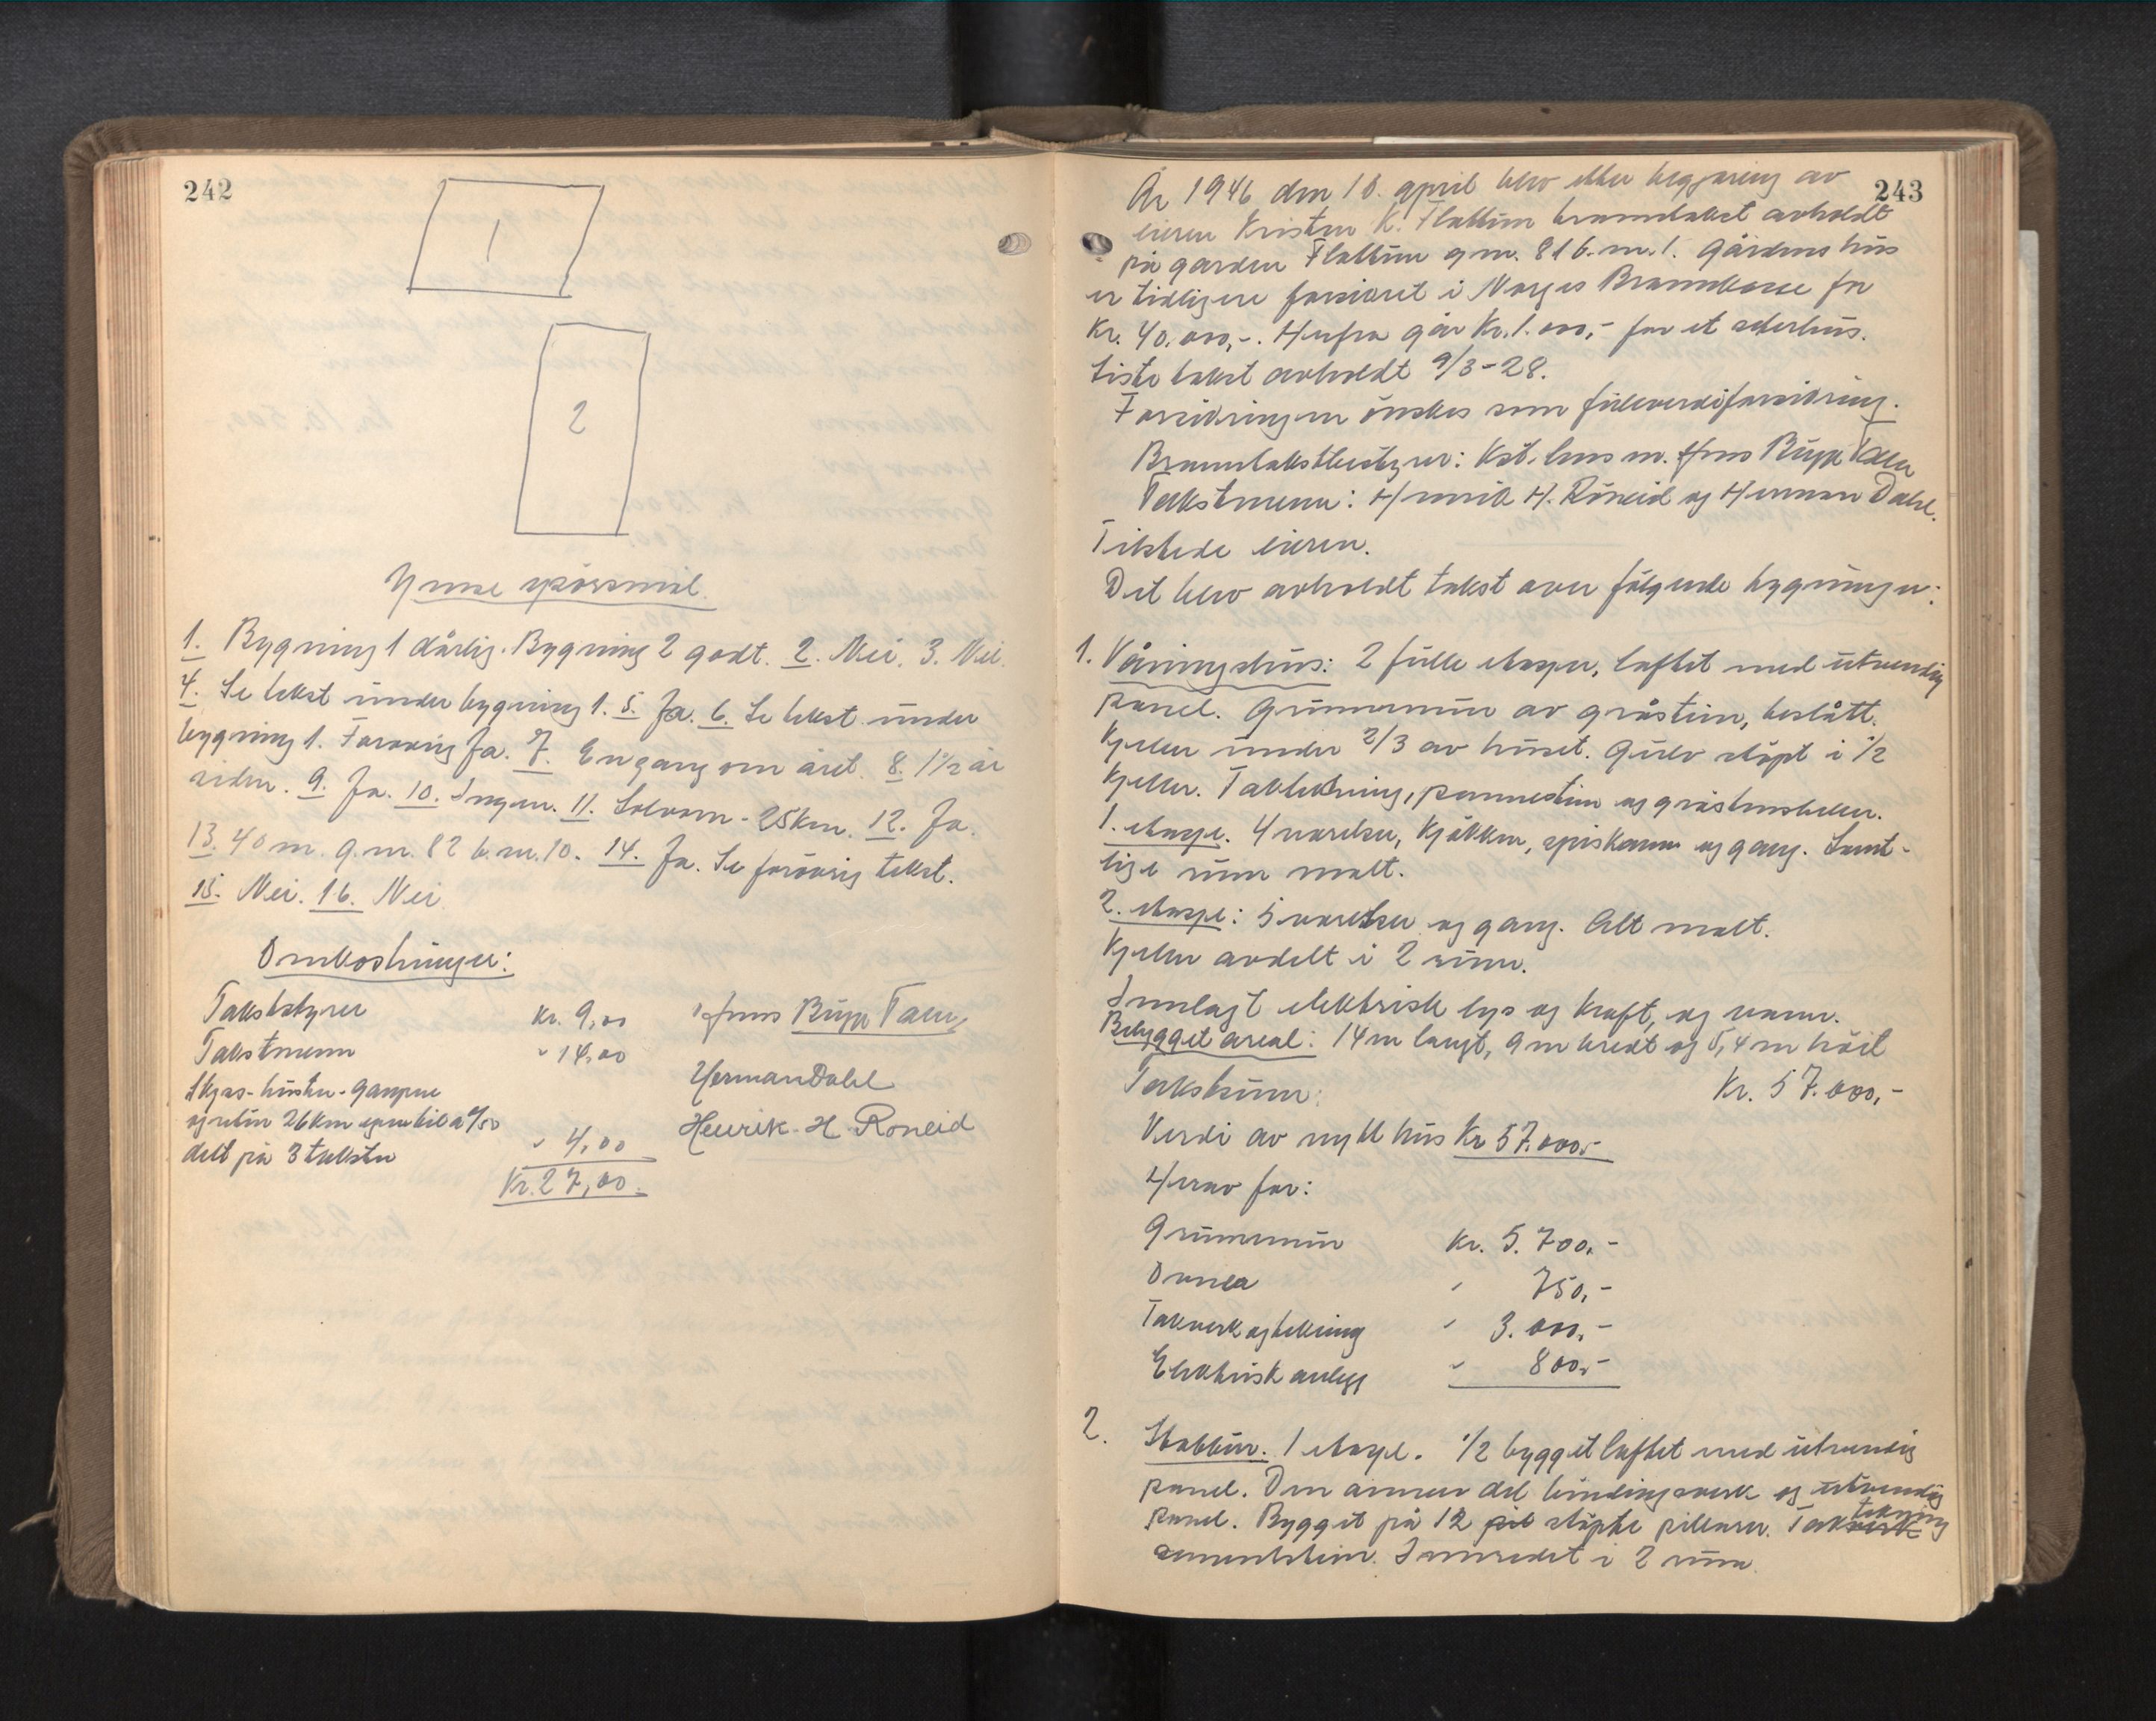 242
1
2
Ymse spörsmål.
1. Bygning 1 dårlig. Bygning 2 godt. 2. Nei. 3. Nei.
4. Se tekst under bygning 1. 5. Ja. 6. Se tekst under
bygning 1. Forøvrig Ja. 7. En gang om året. 8. 1 1/2 år
siden. 9. Ja. 10. Ingen. 11. Solvorn - 25 km. 12. Ja.
13. 40 m. g.nr. 82 b.nr. 10. 14. Ja. Se forøvrig tekst.
15. Nei. 16. Nei
Omkostninger:
Takstbstyrer kr. 9,00
Takstmenn " 14,00
Skjss-husten-Gaupne
og retur 26 km egen bil a 0/50
delt på 3 takster " 4,00
Kr. 27,00.
Jens Bugge
Herman Dahl
Henrik H. Røneid
243
År 1946 den 10. april blev etter begjæring av
eieren Kristen K. Flattun branntakst avholdt
på garden Flattun g nr. 81 b.nr. 1. Gårdens hus
er tidligere forsikret i Norges Brannkasse for
Kr. 40.000,-. Herfra går Kr. 1.000,- for et seterhus.
Siste takst avholdt 9/3-28.
Forsikringen ønskes som fulverdiforsikring.
Branntakstbestyrer: Jens Bugge
Takstmenn: Henrik H. Röneid og Herman Dahl.
Tilstede eieren.
Det blev avholdt takst over følgende bygninger:
1. Våningshus: 2 fulle etasjer, laftet med utvendig
panel. Grunnmur av gråstein, beslått.
Kjeller under 2/3 av huset. Gulv støpt i 1/2
kjeller. Taktekning, pannestein og gråsteinsheller.
1. etasje. 4 værelser, kjøkken, spiskam og gang. Samt-
lige rum malt.
2. etasje: 5 værelser og gang. Alt malt.
Kjeller avdelt i 2 rum.
Innlagt elektrisk lys og kraft, og vann.
Bebygget areal: 14 m langt, 9 m bredt og 5,4 m höit
Takstsum: Kr. 57.000,-
Verdi av nytt hus Kr 57.000,-
Herav for:
Grunnmur Kr. 5.700,-
Ovner " 750,-
Takverk og tekning " 3.000,-
Elektrisk anlegg " 800,-
2. Stabbur. 1 etasje. 1/2 bygget laftet med utvendig
panel. Den annen del bindingsverk og utvendig
panel. Bygget på 12 støpte pillarer. Taktekning
sementstein. Innredet i 2 rum